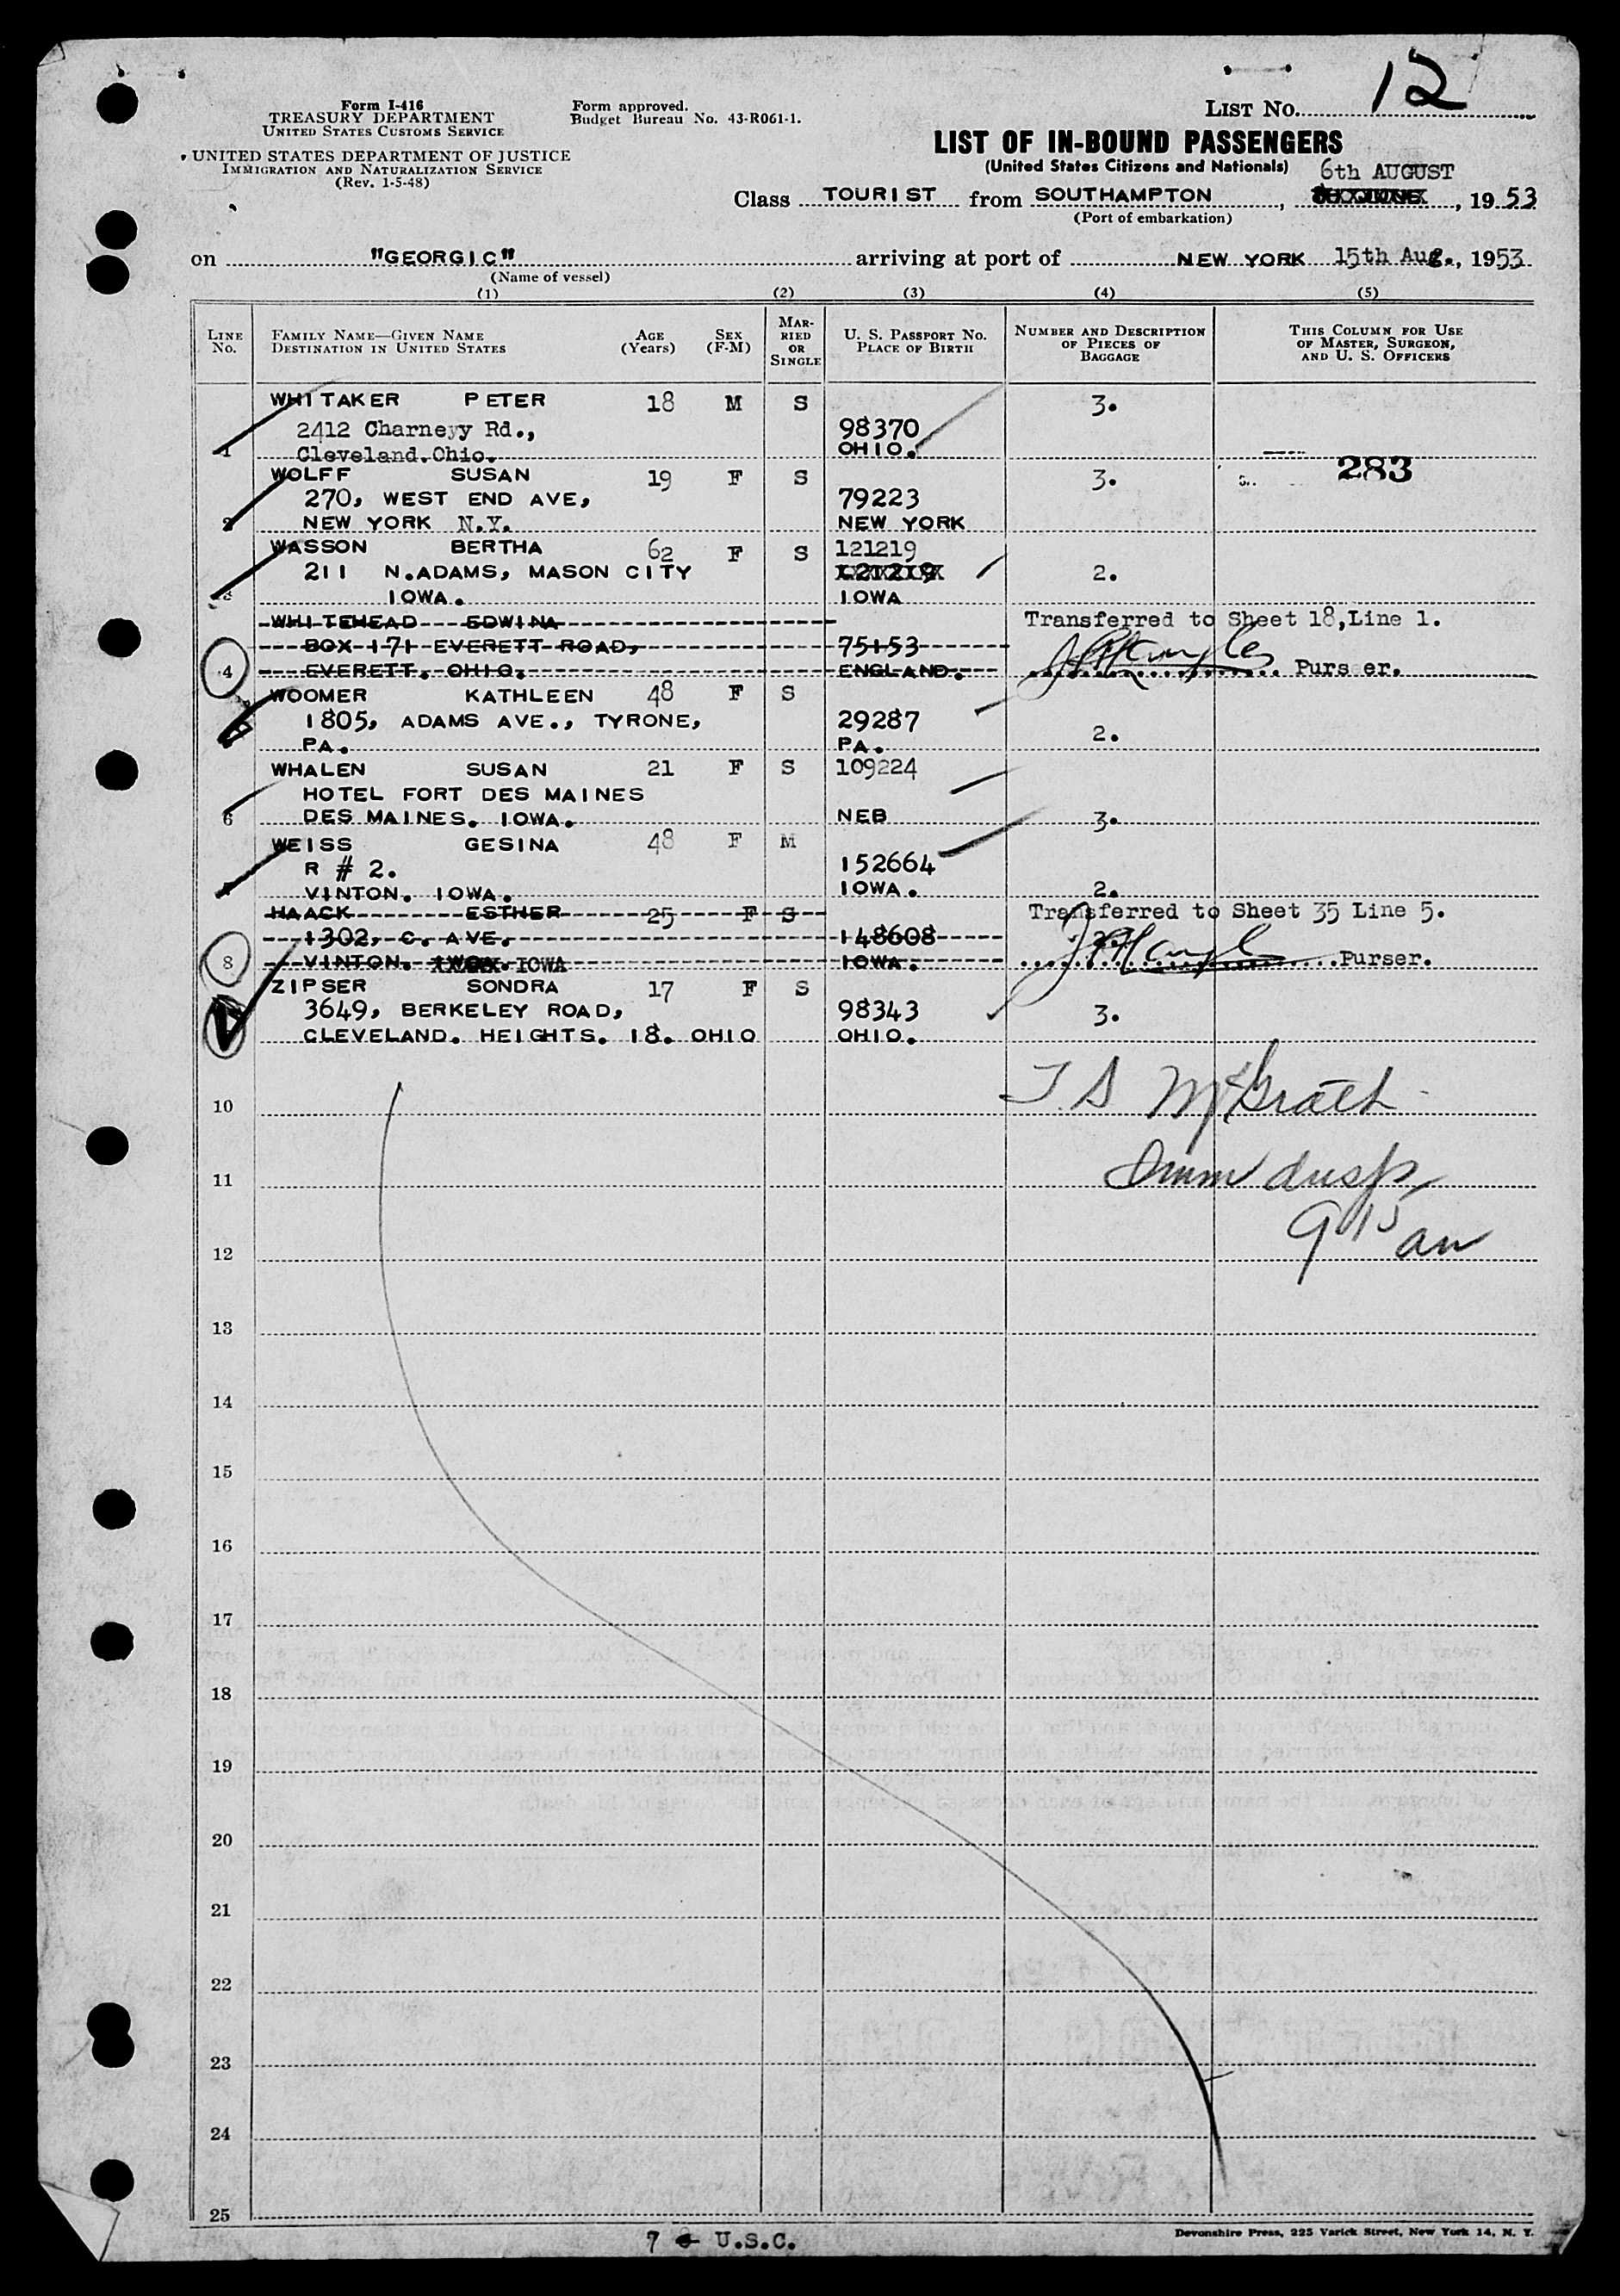 LIST No. 12
Form I-416
TREASURY DEPARTMENT
UNITED STATES CUSTOMS SERVICE
UNITED STATES DEPARTMENT OF JUSTICE
IMMIGRATION AND NATURALIZATION SERVICE
(Rev. 1-5-48)
Form approved.
Budget Bureau No. 43-R061-1.
LIST OF IN-BOUND PASSENGERS
(United States Citizens and Nationals)
6th AUGUST
Class TOURIST from SOUTHAMPTON, 1953
(Port of embarkation)
on "GEORGIC" arriving at port of NEW YORK 15th Aug., 1953
(Name of vessel)
(1) (2) (3) (4) (5)
LINE No. FAMILY NAME—GIVEN NAME DESTINATION IN UNITED STATES AGE (Years) SEX (F-M) MARRIED OR SINGLE U. S. PASSPORT No. PLACE OF BIRTH NUMBER AND DESCRIPTION OF PIECES OF BAGGAGE THIS COLUMN FOR USE OF MASTER, SURGEON, AND U. S. OFFICERS
WHITAKER PETER 18 M S 3.
2412 Charneyy Rd., 98370
1 Cleveland.Ohio. OHIO.
WOLFF SUSAN 19 F S 3. 283
270, WEST END AVE, 79223
2 NEW YORK N.Y. NEW YORK
WASSON BERTHA 62 F S 121219
211 N.ADAMS, MASON CITY 2.
IOWA. IOWA
WHITEHEAD EDWINA Transferred to Sheet 18,Line 1.
BOX 171 EVERETT ROAD, 75153
4 EVERETT. OHIO. ENGLAND. Purs er.
WOOMER KATHLEEN 48 F S
1805, ADAMS AVE., TYRONE, 29287 2.
PA. PA.
WHALEN SUSAN 21 F S 109224
HOTEL FORT DES MAINES
6 DES MAINES. IOWA. NEB 3.
WEISS GESINA 48 F M
R # 2. 152664
VINTON. IOWA. IOWA. 2.
HAACK ESTHER 25 F S Transferred to Sheet 35 Line 5.
1302, C. AVE. 148608
8 VINTON. IOWA IOWA. Purser.
ZIPSER SONDRA 17 F S
3649, BERKELEY ROAD, 98343 3.
CLEVELAND. HEIGHTS. 18. OHIO OHIO.
T. S McGrath
10
Imm Insp
11
9 15 am
12
13
14
15
16
17
18
19
20
21
22
23
24
25
7 U.S.C.
Devonshire Press, 225 Varick Street, New York 14, N. Y.